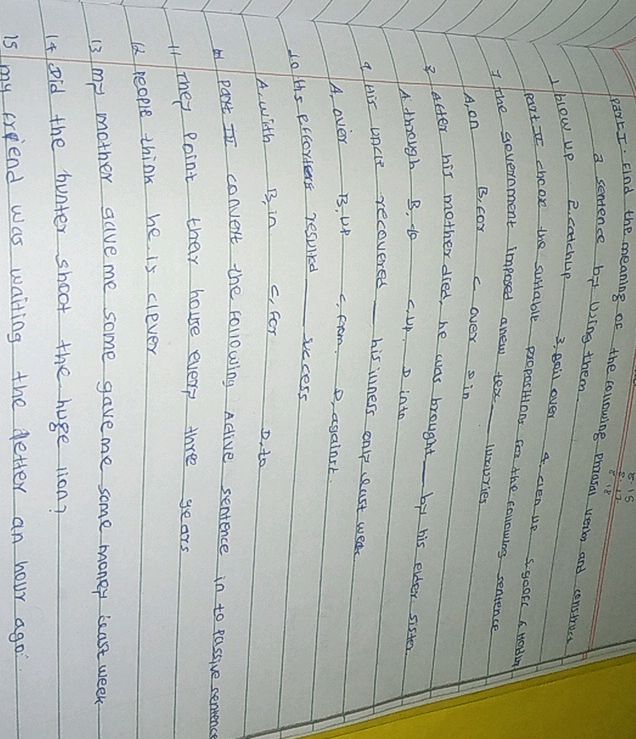 8-15
8-17
8-18
Part I. Find the meaning of the following phrasal verbs and construct
a sentence by using them
1 blow up 2, catch up 3, boil over 4. clen up 5.
Part II choose the suitable prepositions for the following sentence
7 The government imposed a new tex ___ luxuries
A, on B, for C over D in
8 After his mother died, he was brought ___ by his elder sister.
A through B, to C up. D into
9 His uncle recovered ___ his illness only last week
A, over B, up C, from. D, against.
10 His effortess resulted ___ success
A, with B, in C, for D. to
Part III convert the following Active sentence in to passive sentence
11 They Paint their house every three years
12 People think he is clever
13 my mother gave me some gave me some money last week
14 Did the hunter shoot the huge lion?
15 my friend was waiting the letter an hour ago.